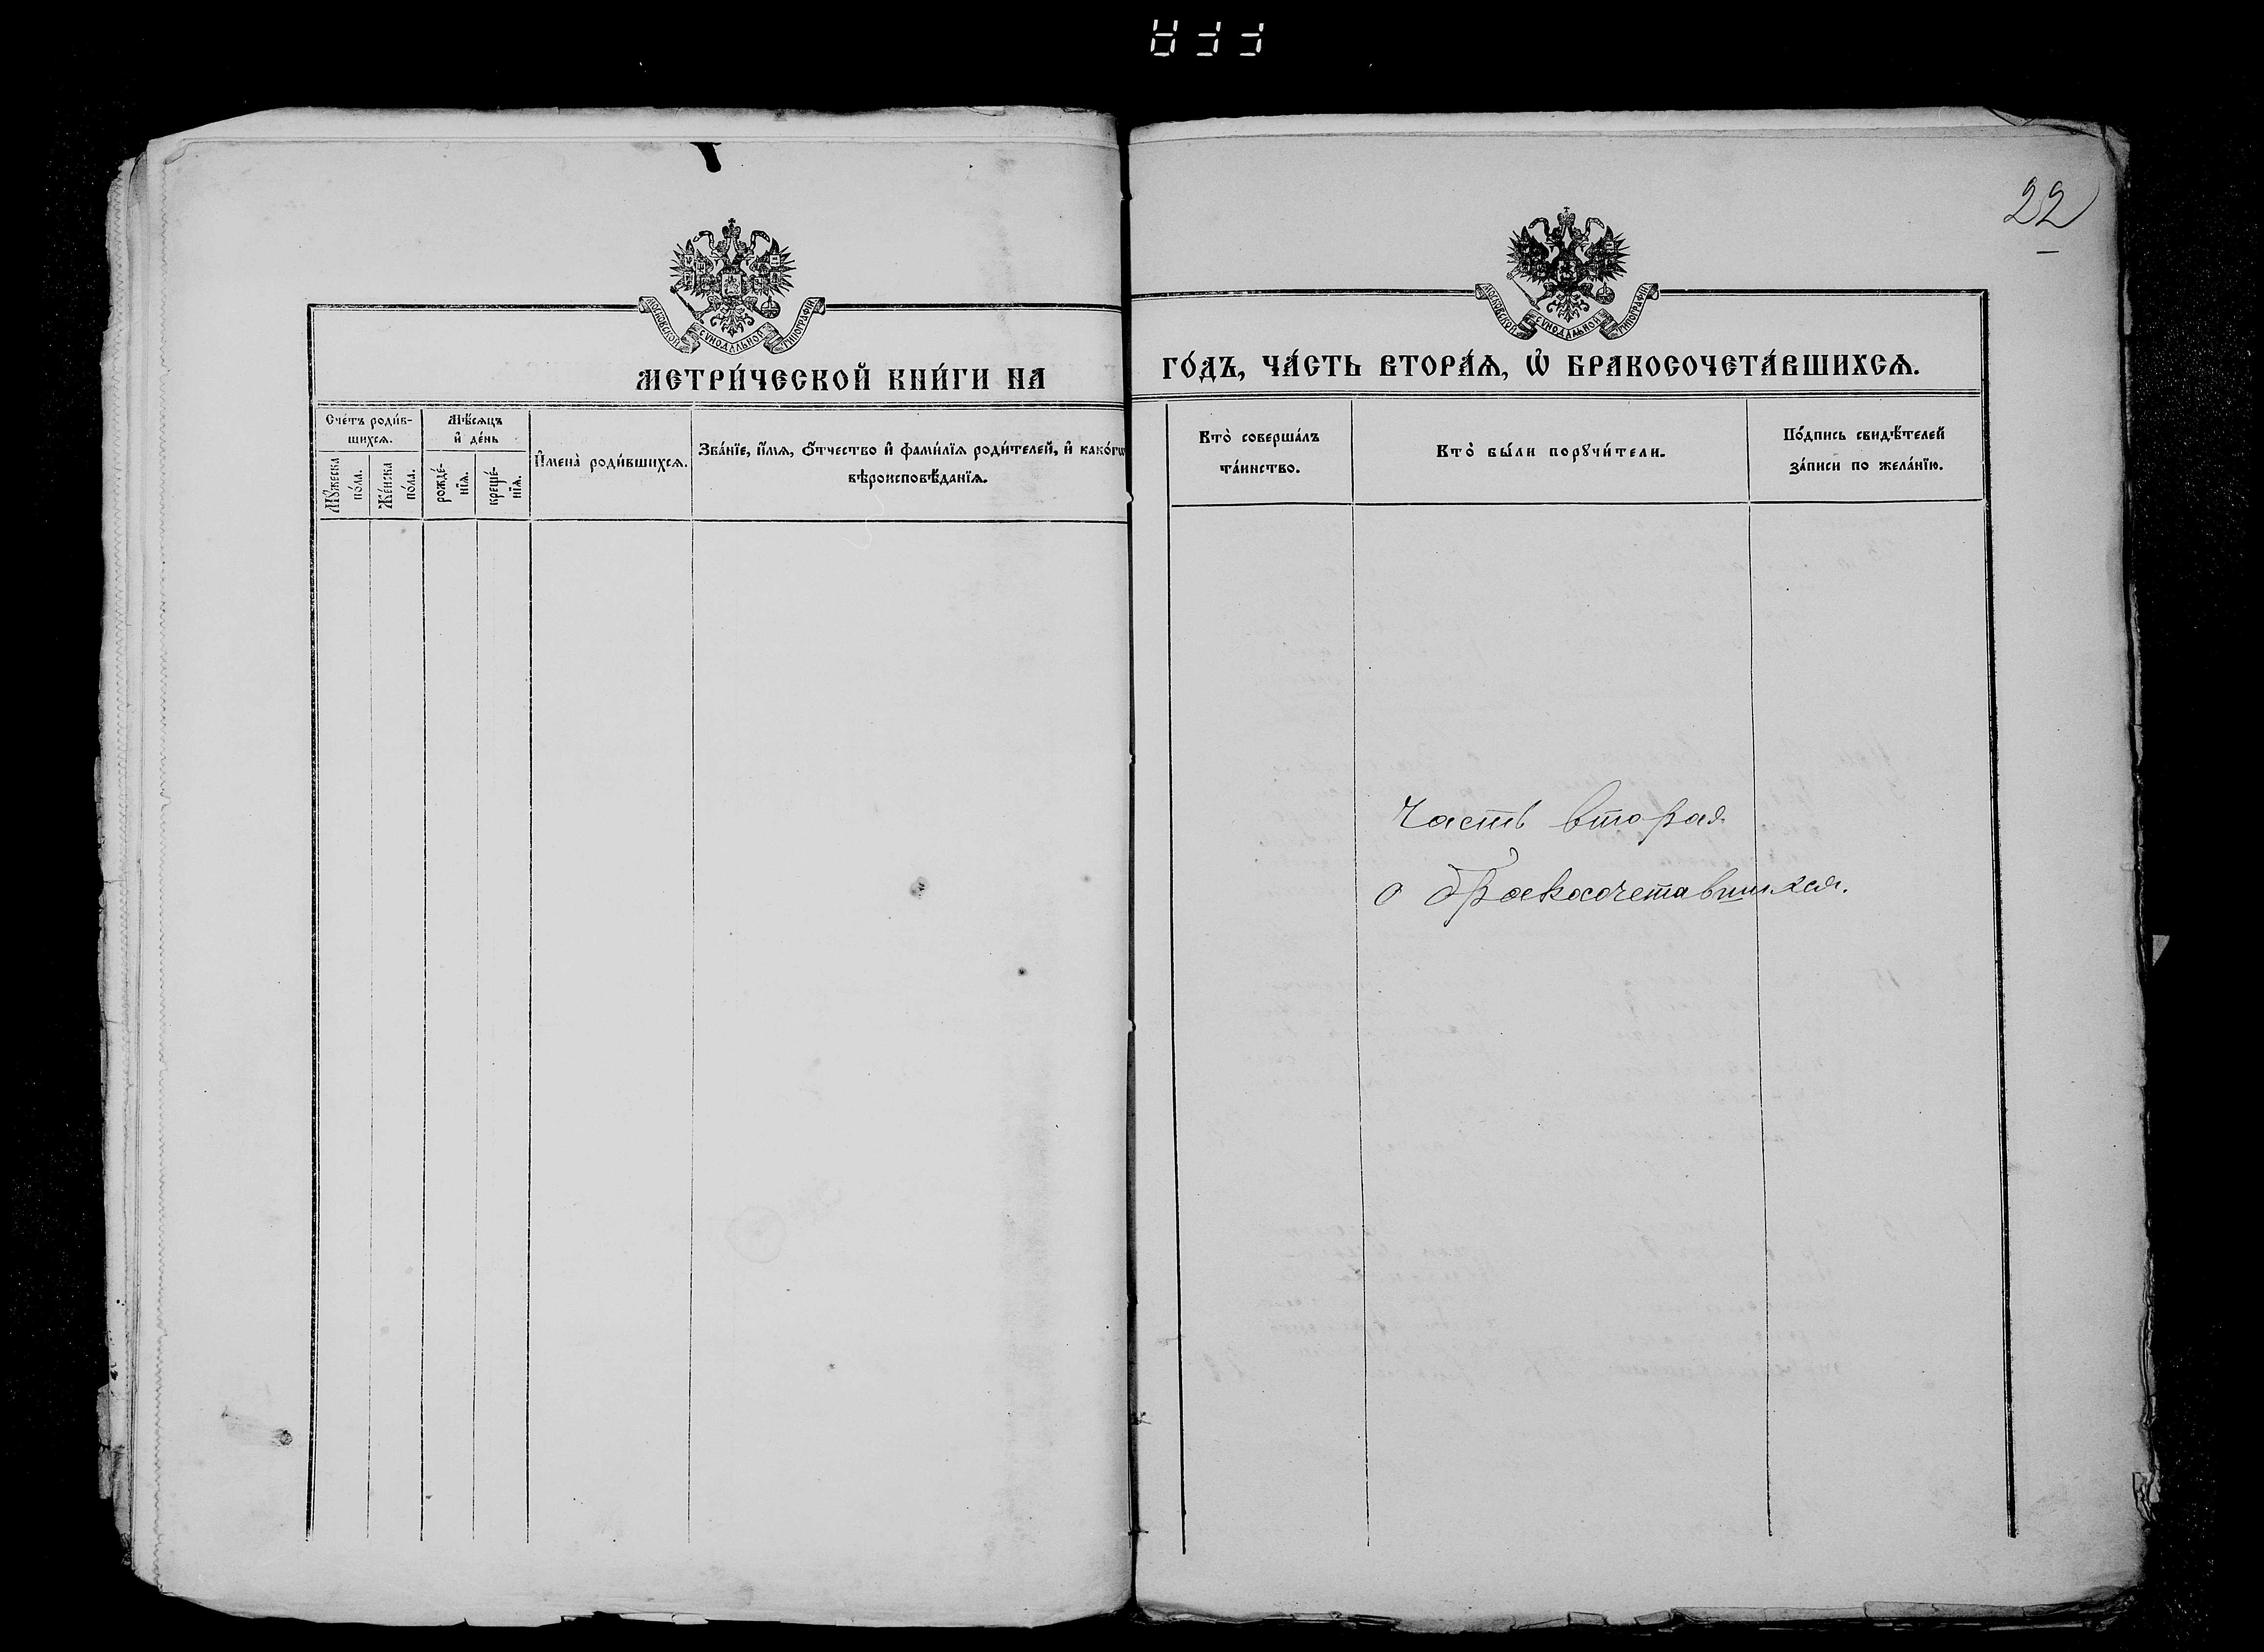 22
МОСКОВСКОЙ СѴНОДАЛЬНОЙ ТИПОГРАФІИ
МЕТРИ́ЧЕСКОЙ КНИ́ГИ НА
Сче́тъ роди́в-
шихсѧ.
Мꙋ́жеска
по́ла.
Же́нска
по́ла.
Мѣ́сѧцъ
и҆ де́нь
рожде́-
нїѧ.
креще́-
нїѧ.
И҆мена̀ роди́вшихсѧ.
Зва́нїе, и҆́мѧ, ѻ҆́тчество и҆ фами́лїѧ роди́телей, и҆ како́гѡ
вѣроисповѣ́данїѧ.
МОСКОВСКОЙ СѴНОДАЛЬНОЙ ТИПОГРАФІИ
ГО́ДЪ, ЧА́СТЬ ВТОРА́Ѧ, Ѡ҆ БРАКОСОЧЕТА́ВШИХСѦ.
Кто̀ соверша́лъ
та́инство.
Кто̀ бы́ли порꙋчи́тели.
По́дпись свидѣ́телей
за́писи по жела́нїю.
Часть вторая
о бракосочетавшихся.